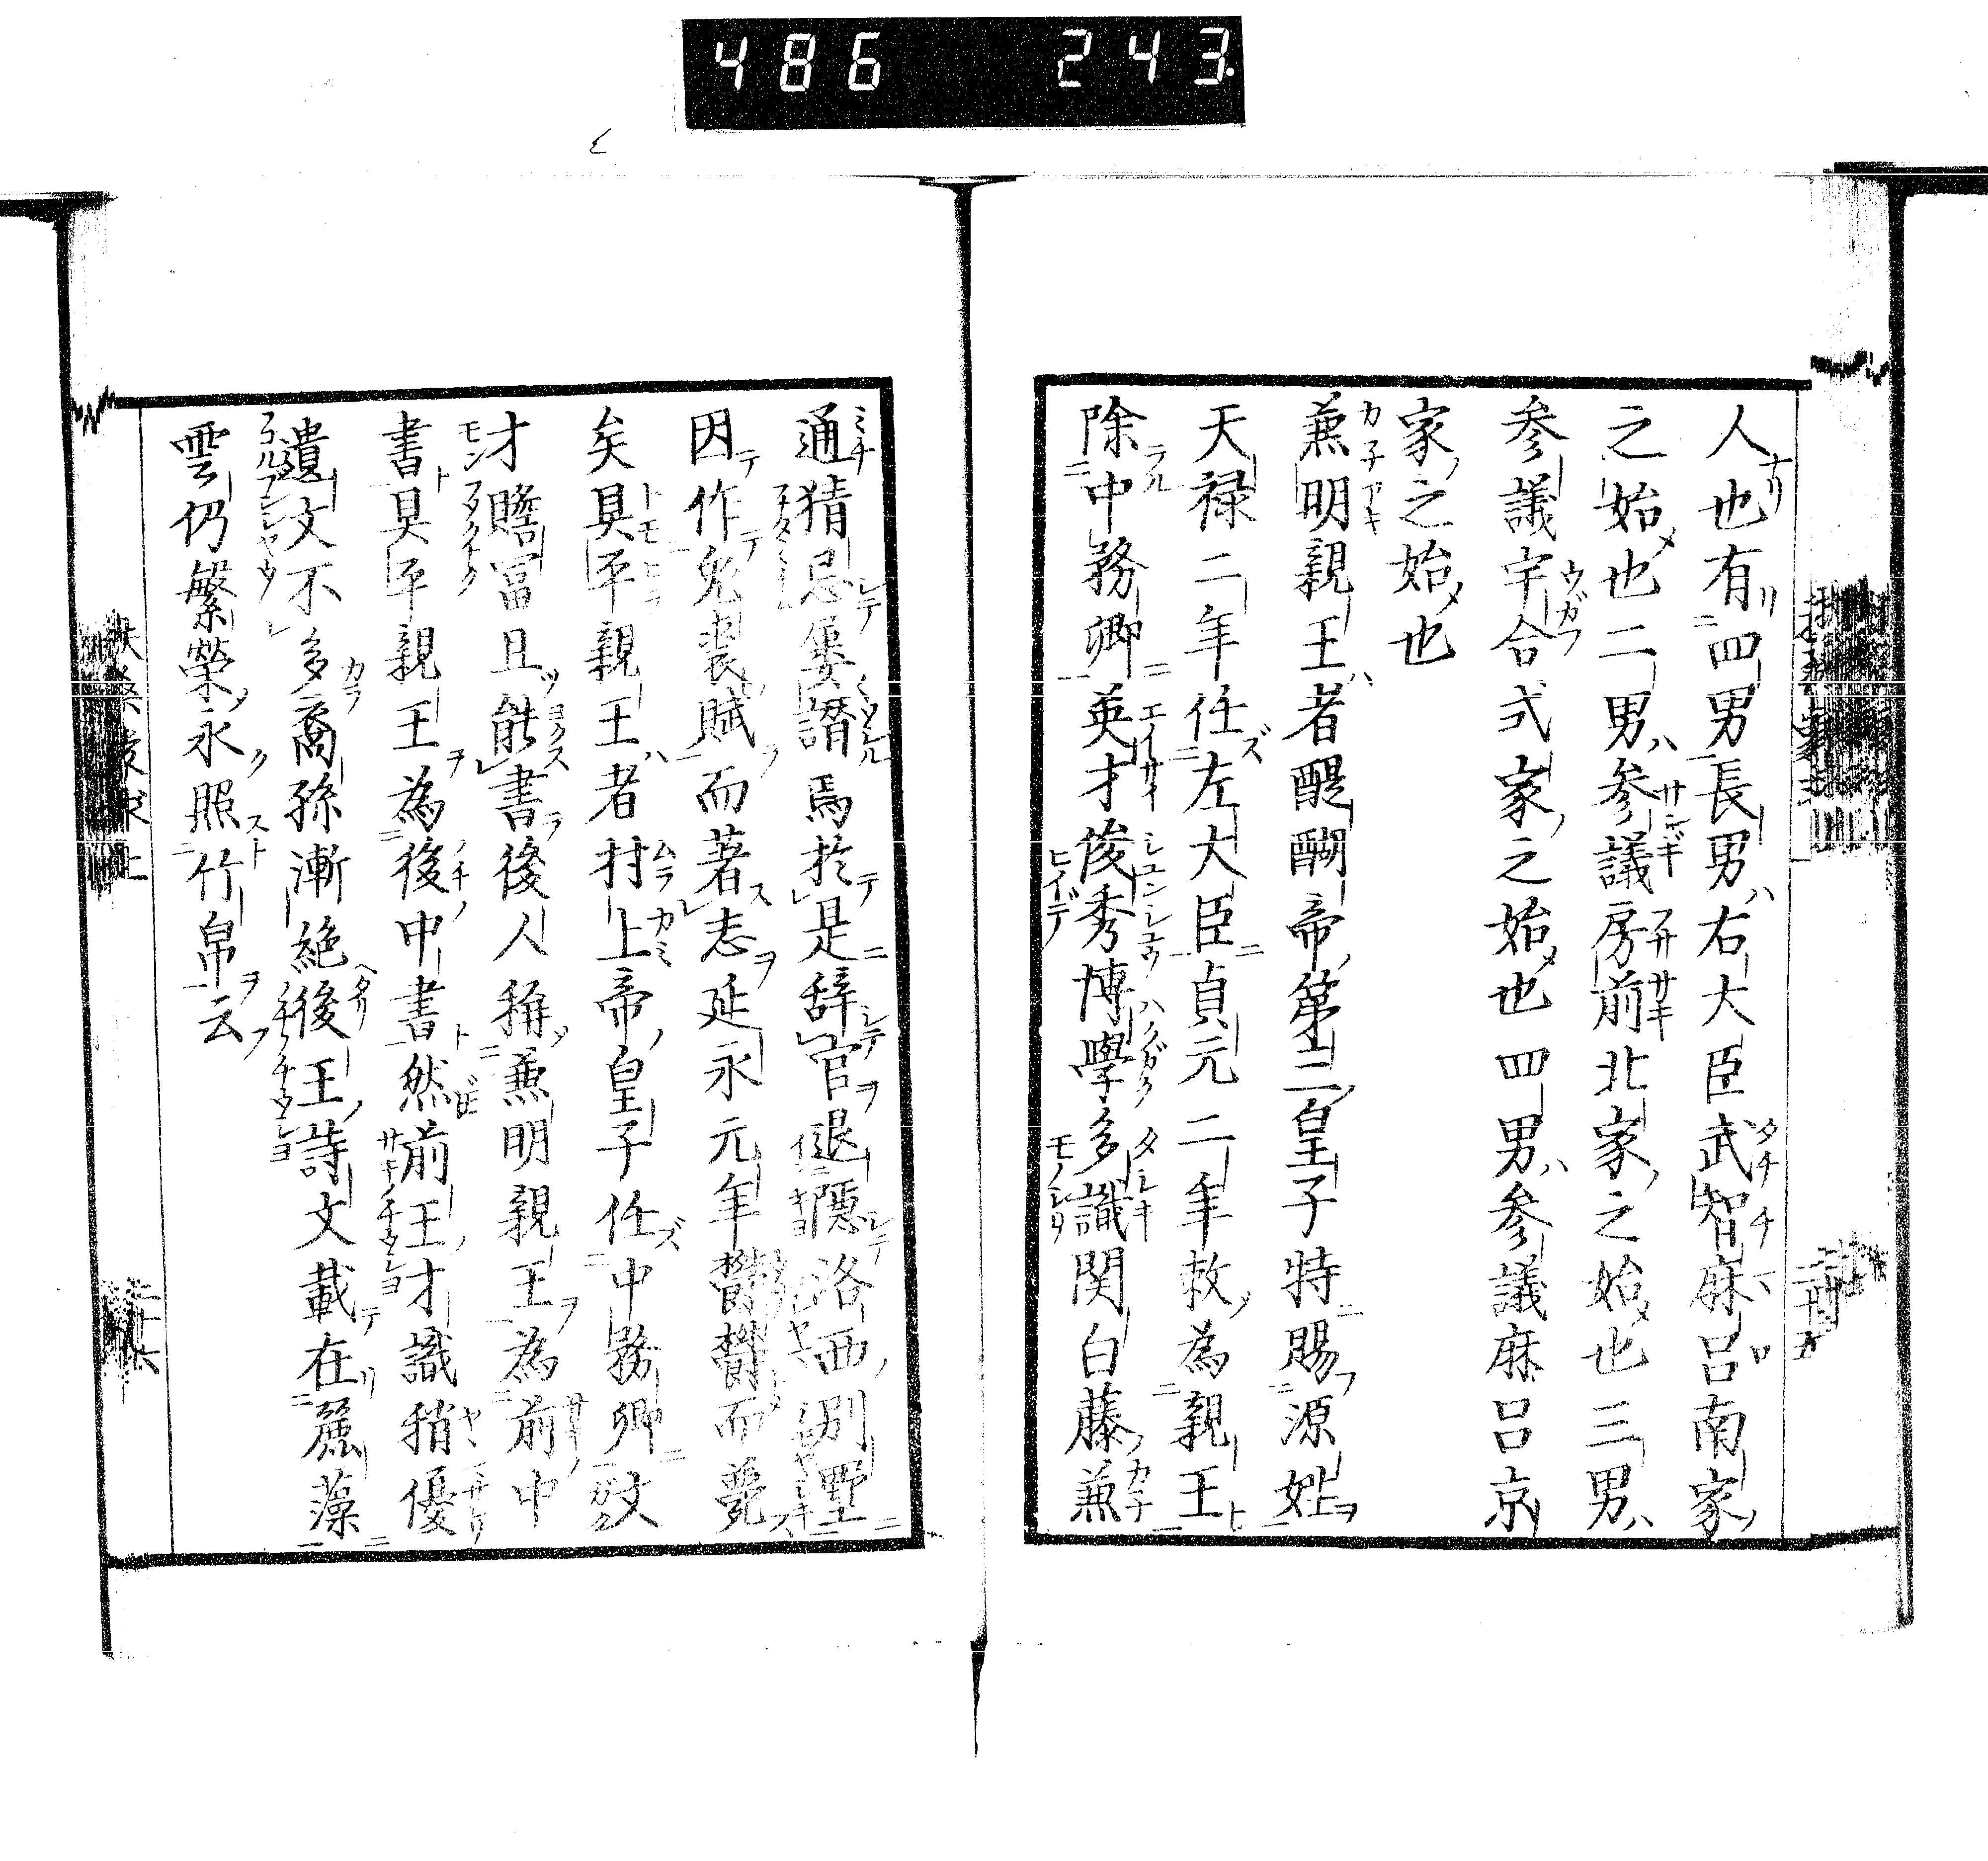 486 243
人也有四男長男右大臣武智麻呂南家
之始也二男参議房前北家之始也三男
参議宇合式家之始也四男参議麻呂京
家之始也
兼明親王者醍醐帝第二皇子特賜源姓
天禄二年任左大臣貞元二年敕為親王
除中務卿英才俊秀博學多識関白藤兼
通猜忌屡譖焉於是辞官退隱洛西別墅
因作兔裘賦而著志延永元年欝欝而薨
矣具平親王者村上帝皇子任中務卿文
才贍冨且能書後人稱兼明親王為前中
書具平親王為後中書然前王才識稍優
遺文不多裔孫漸絶後王詩文載在麗藻
雲仍繁榮永照竹帛云